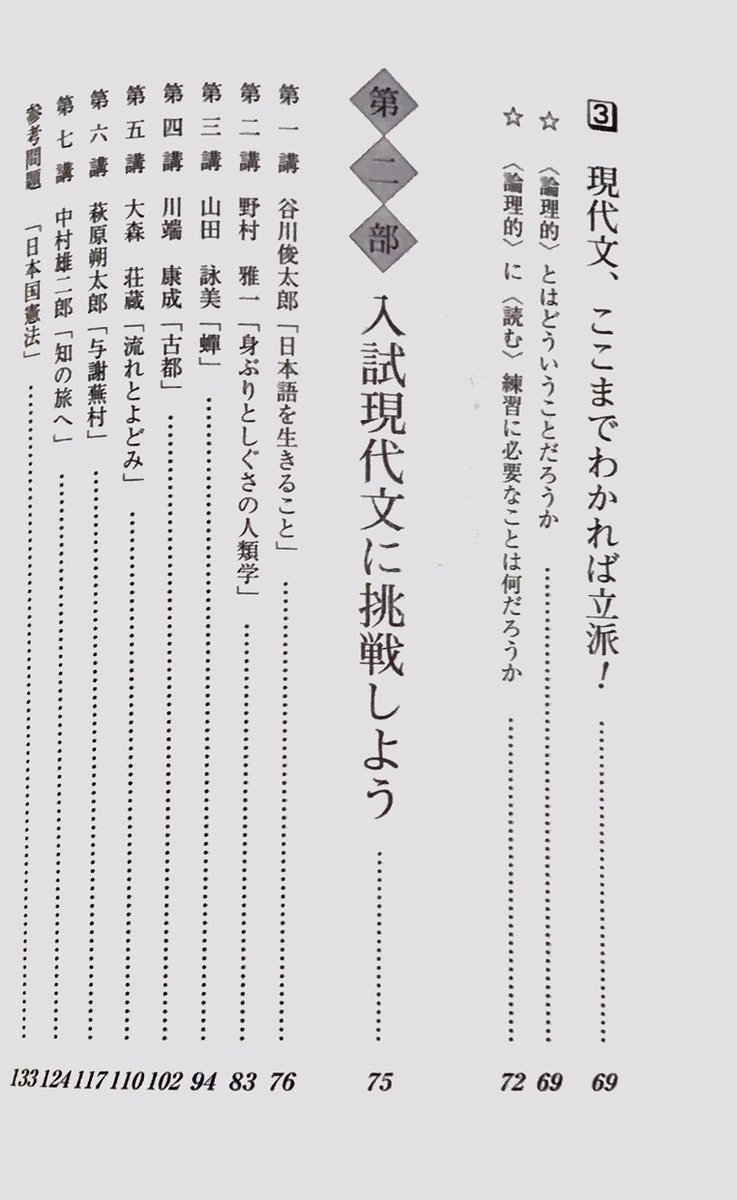 3 現代文、ここまでわかれば立派！ ……… 69
☆ 〈論理的〉とはどういうことだろうか ……… 69
☆ 〈論理的〉に〈読む〉練習に必要なことは何だろうか ……… 72
第二部 入試現代文に挑戦しよう ……… 75
第一講 谷川俊太郎「日本語を生きること」 ……… 76
第二講 野村 雅一「身ぶりとしぐさの人類学」 ……… 83
第三講 山田 詠美「蟬」 ……… 94
第四講 川端 康成「古都」 ……… 102
第五講 大森 荘蔵「流れとよどみ」 ……… 110
第六講 萩原朔太郎「与謝蕪村」 ……… 117
第七講 中村雄二郎「知の旅へ」 ……… 124
参考問題 「日本国憲法」 ……… 133